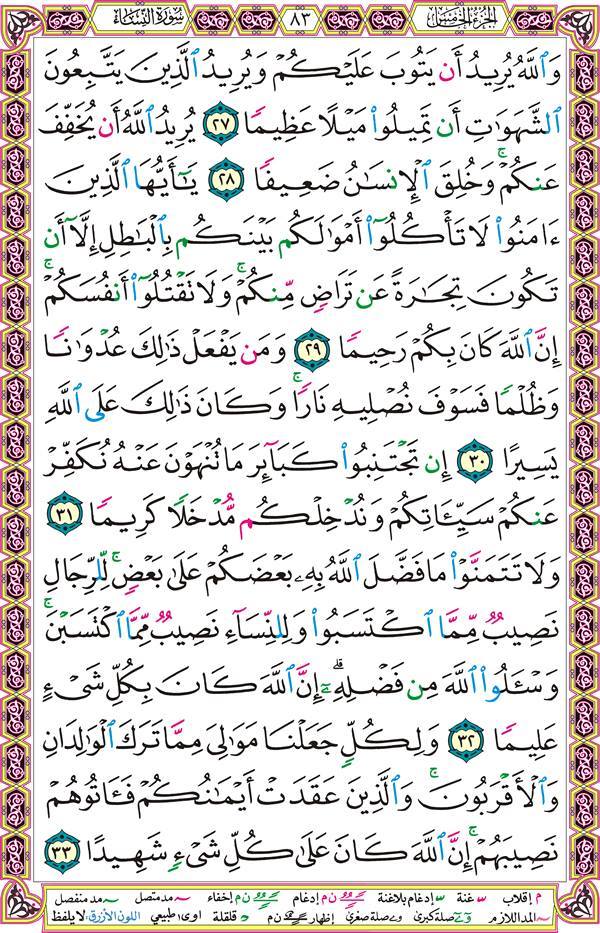 الجزء الخامس ٨٣ سورة النساء
وَٱللَّهُ يُرِيدُ أَن يَتُوبَ عَلَيْكُمْ وَيُرِيدُ ٱلَّذِينَ يَتَّبِعُونَ
ٱلشَّهَوَٰتِ أَن تَمِيلُوا۟ مَيْلًا عَظِيمًا ٢٧ يُرِيدُ ٱللَّهُ أَن يُخَفِّفَ
عَنكُمْ ۚ وَخُلِقَ ٱلْإِنسَٰنُ ضَعِيفًا ٢٨ يَٰٓأَيُّهَا ٱلَّذِينَ
ءَامَنُوا۟ لَا تَأْكُلُوٓا۟ أَمْوَٰلَكُم بَيْنَكُم بِٱلْبَٰطِلِ إِلَّآ أَن
تَكُونَ تِجَٰرَةً عَن تَرَاضٍ مِّنكُمْ ۚ وَلَا تَقْتُلُوٓا۟ أَنفُسَكُمْ ۚ
إِنَّ ٱللَّهَ كَانَ بِكُمْ رَحِيمًا ٢٩ وَمَن يَفْعَلْ ذَٰلِكَ عُدْوَٰنًا
وَظُلْمًا فَسَوْفَ نُصْلِيهِ نَارًا ۚ وَكَانَ ذَٰلِكَ عَلَى ٱللَّهِ
يَسِيرًا ٣٠ إِن تَجْتَنِبُوا۟ كَبَآئِرَ مَا تُنْهَوْنَ عَنْهُ نُكَفِّرْ
عَنكُمْ سَيِّـَٔاتِكُمْ وَنُدْخِلْكُم مُّدْخَلًا كَرِيمًا ٣١
وَلَا تَتَمَنَّوْا۟ مَا فَضَّلَ ٱللَّهُ بِهِۦ بَعْضَكُمْ عَلَىٰ بَعْضٍ ۚ لِّلرِّجَالِ
نَصِيبٌ مِّمَّا ٱكْتَسَبُوا۟ ۖ وَلِلنِّسَآءِ نَصِيبٌ مِّمَّا ٱكْتَسَبْنَ ۚ
وَسْـَٔلُوا۟ ٱللَّهَ مِن فَضْلِهِۦٓ ۗ إِنَّ ٱللَّهَ كَانَ بِكُلِّ شَىْءٍ
عَلِيمًا ٣٢ وَلِكُلٍّ جَعَلْنَا مَوَٰلِىَ مِمَّا تَرَكَ ٱلْوَٰلِدَانِ
وَٱلْأَقْرَبُونَ ۚ وَٱلَّذِينَ عَقَدَتْ أَيْمَٰنُكُمْ فَـَٔاتُوهُمْ
نَصِيبَهُمْ ۚ إِنَّ ٱللَّهَ كَانَ عَلَىٰ كُلِّ شَىْءٍ شَهِيدًا ٣٣
م إقلاب غنة إدغام بلاغنة ن م إدغام ن م إخفاء مد متصل مد منفصل
المد اللازم صلة كبرى صلة صغرى إظهار ن م قلقلة اوى طبيعي اللون الأزرق: لا يلفظ